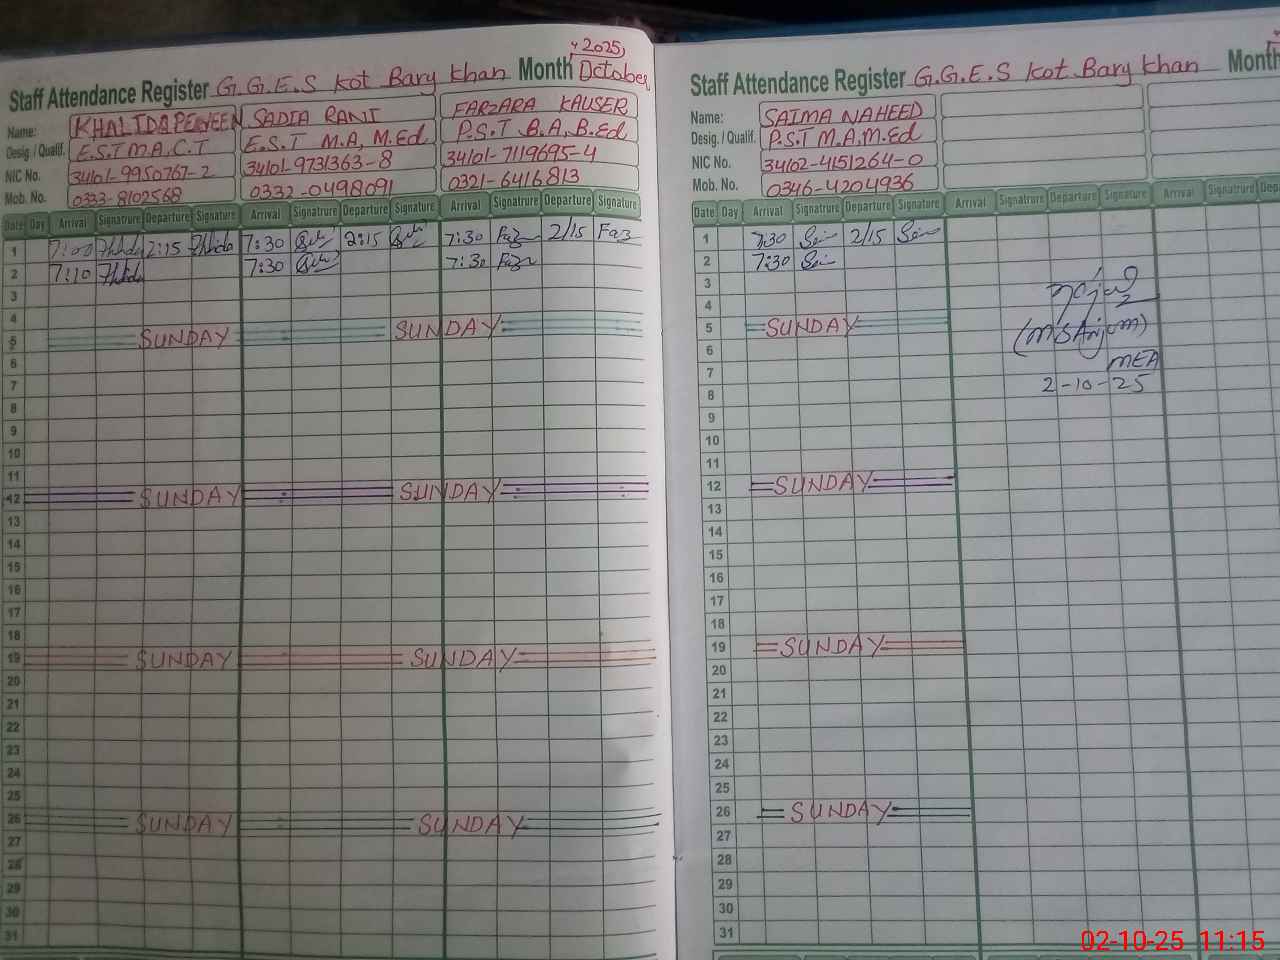 Staff Attendance Register G.G.E.S Kot Bary Khan Month October 2025
Name: KHALIDA PERVEEN SADIA RANI FARZARA KAUSER
Desig. / Qualif. E.S.T M.A, C.T E.S.T M.A, M.Ed P.S.T B.A, B.Ed
NIC No. 34101-9950767-2 34101-9731363-8 34101-7119695-4
Mob. No. 0333-8102568 0332-0498091 0321-6416813
Date Day Arrival Signatrure Departure Signatrure Arrival Signatrure Departure Signatrure Arrival Signatrure Departure Signatrure
1 7:00 2:15 7:30 2:15 7:30 Faz 2/15 Faz
2 7:10 7:30 7:30 Faz
3
4
5 SUNDAY SUNDAY
6
7
8
9
10
11
12 SUNDAY SUNDAY
13
14
15
16
17
18
19 SUNDAY SUNDAY
20
21
22
23
24
25
26 SUNDAY SUNDAY
27
28
29
30
31
Staff Attendance Register G.G.E.S Kot Bary Khan Month
Name: SAIMA NAHEED
Desig. / Qualif. P.S.T M.A, M.Ed
NIC No. 34102-4151264-0
Mob. No. 0346-4204936
Date Day Arrival Signatrure Departure Signatrure Arrival Signatrure Departure Signatrure Arrival Signatrure
1 7:30 2/15
2 7:30
3
4
5 SUNDAY
6 (M S Anjum)
7 MEA
8 2-10-25
9
10
11
12 SUNDAY
13
14
15
16
17
18
19 SUNDAY
20
21
22
23
24
25
26 SUNDAY
27
28
29
30
31
02-10-25 11:15